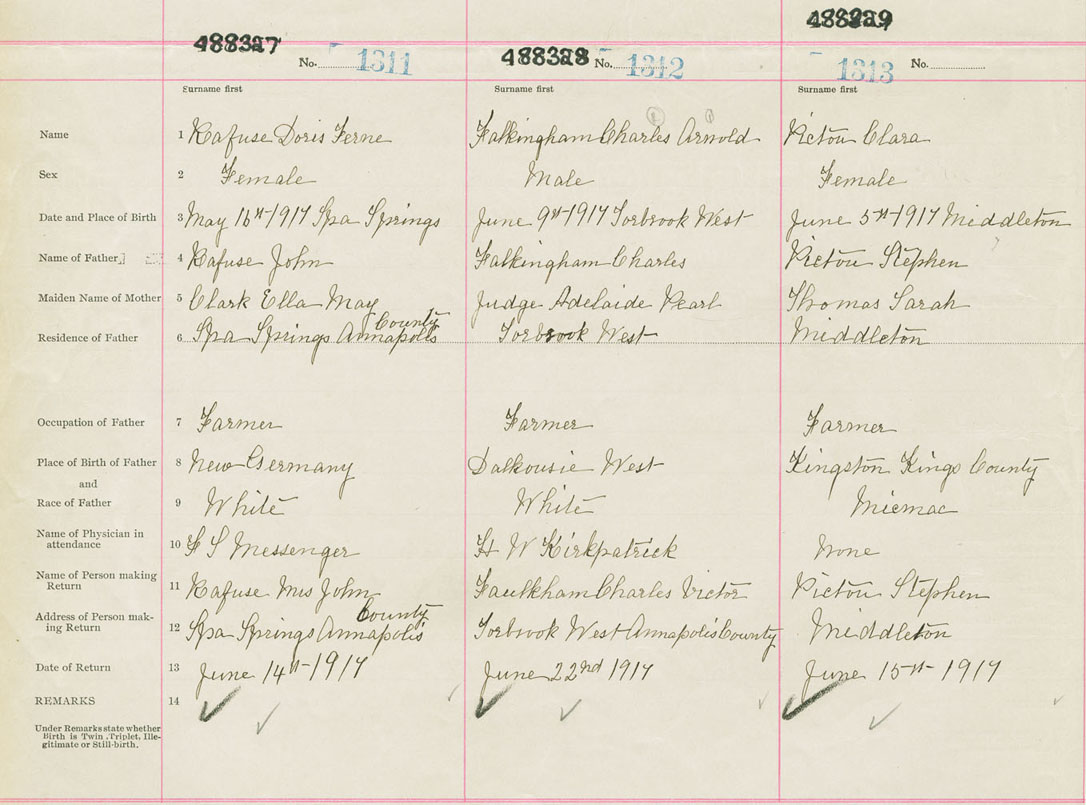 488329
488327 No. 1311 488328 No. 1312 1313 No.
Surname first Surname first Surname first
Name 1 Rafuse Doris Ferne Falkingham Charles Arnold Pictou Clara
Sex 2 Female Male Female
Date and Place of Birth 3 May 16th 1917 Spa Springs June 9th 1917 Torbrook West June 5th 1917 Middleton
Name of Father 4 Rafuse John Falkingham Charles Pictou Stephen
Maiden Name of Mother 5 Clark Ella May Judge Adelaide Pearl Thomas Sarah
Residence of Father 6 Spa Springs Annapolis County Torbrook West Middleton
Occupation of Father 7 Farmer Farmer Farmer
Place of Birth of Father 8 New Germany Dalhousie West Kingston Kings County
and
Race of Father 9 White White Micmac
Name of Physician in
attendance 10 F S Messenger H W Kirkpatrick None
Name of Person making
Return 11 Rafuse Mrs John Faulkham Charles Victor Pictou Stephen
Address of Person mak-
ing Return 12 Spa Springs Annapolis County Torbrook West Annapolis County Middleton
Date of Return 13 June 14th 1917 June 22nd 1917 June 15th 1917
REMARKS 14
Under Remarks state whether
Birth is Twin, Triplet, Ille-
gitimate or Still-birth.